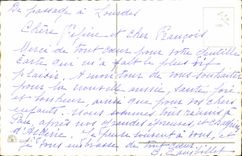 De passage à Lourdes
Chère Régine et cher François
Merci de tout cœur pour votre gentille
Carte qui m'a fait le plus vif
plaisir. A mon tour de vous souhaiter
pour la nouvelle année, santé, joie
et bonheur, ainsi que pour vos chers
enfants. Nous sommes tous réunis à
après nos grandes
d'Algérie. Je pense souvent à vous, et
je vous embrasse de tout cœur